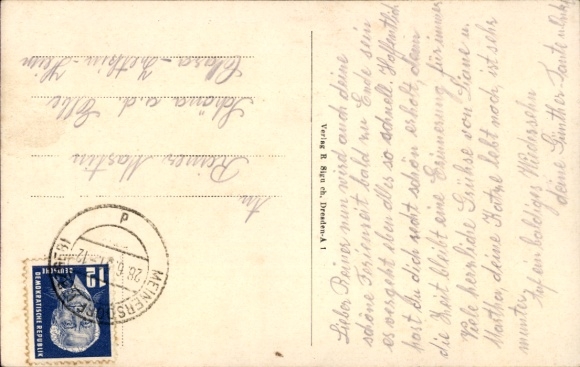 Lieber Reiner nun wird auch deine
schöne Ferienzeit bald zu Ende sein
es vergeht eben alles so schnell. Hoffentlich
hast du dich recht schön erholt, denn
die Zeit bleibt eine Erinnerung für immer
viele herzliche Grüße von Liane u.
Martha deine Katze lebt noch, ist sehr
munter.
Auf ein baldiges Wiedersehn
deine Günther-Tante u.
Verlag R. Sigu ch, Dresden-A 1
An
Reiner Martin
Schöna a.d. Elbe
Clara-Zetkin-Heim
MEINERSDORF
26.6.
12
DEUTSCHE
DEMOKRATISCHE REPUBLIK